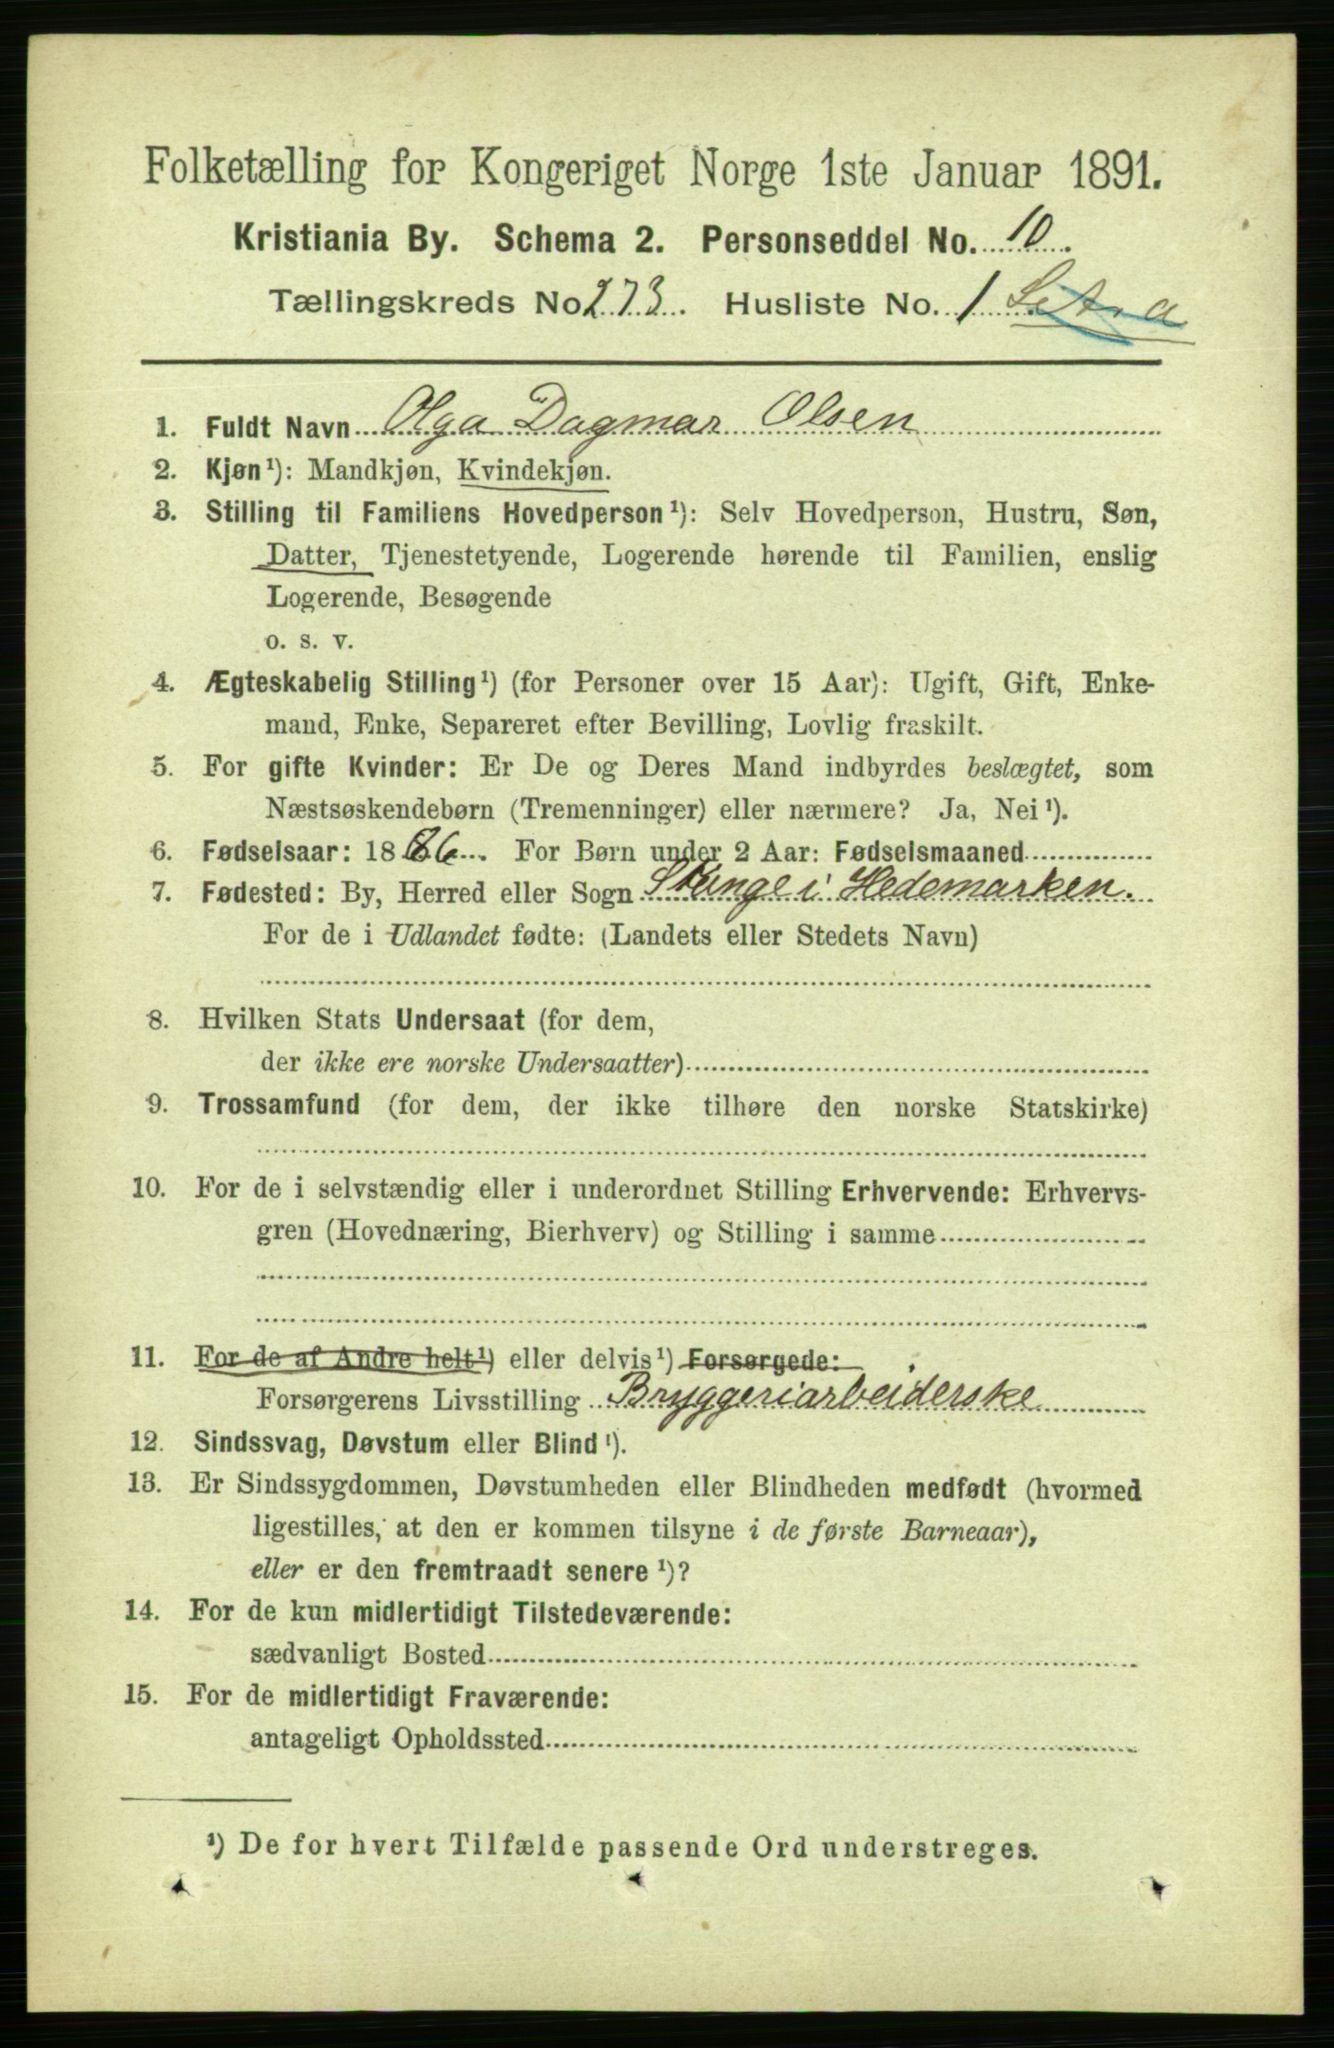 Folketælling for Kongeriget Norge 1ste Januar 1891.
Kristiania By. Schema 2. Personseddel No. 10.
Tællingskreds No 273. Husliste No. 1 Litra a
1. Fuldt Navn Olga Dagmar Olsen
2. Kjøn¹): Mandkjøn, Kvindekjøn.
3. Stilling til Familiens Hovedperson¹): Selv Hovedperson, Hustru, Søn,
Datter, Tjenestetyende, Logerende hørende til Familien, enslig
Logerende, Besøgende
o. s. v.
4. Ægteskabelig Stilling¹) (for Personer over 15 Aar): Ugift, Gift, Enke-
mand, Enke, Separeret efter Bevilling, Lovlig fraskilt.
5. For gifte Kvinder: Er De og Deres Mand indbyrdes beslægtet, som
Næstsøskendebørn (Tremenninger) eller nærmere? Ja, Nei¹).
6. Fødselsaar: 1886. For Børn under 2 Aar: Fødselsmaaned
7. Fødested: By, Herred eller Sogn Stange i Hedemarken.
For de i Udlandet fødte: (Landets eller Stedets Navn)
8. Hvilken Stats Undersaat (for dem,
der ikke ere norske Undersaatter)
9. Trossamfund (for dem, der ikke tilhøre den norske Statskirke)
10. For de i selvstændig eller i underordnet Stilling Erhvervende: Erhvervs-
gren (Hovednæring, Bierhverv) og Stilling i samme
11. For de af Andre helt¹) eller delvis¹) Forsørgede:
Forsørgerens Livsstilling Bryggeriarbeiderske
12. Sindssvag, Døvstum eller Blind¹).
13. Er Sindssygdommen, Døvstumheden eller Blindheden medfødt (hvormed
ligestilles, at den er kommen tilsyne i de første Barneaar),
eller er den fremtraadt senere¹)?
14. For de kun midlertidigt Tilstedeværende:
sædvanligt Bosted
15. For de midlertidigt Fraværende:
antageligt Opholdssted
¹) De for hvert Tilfælde passende Ord understreges.